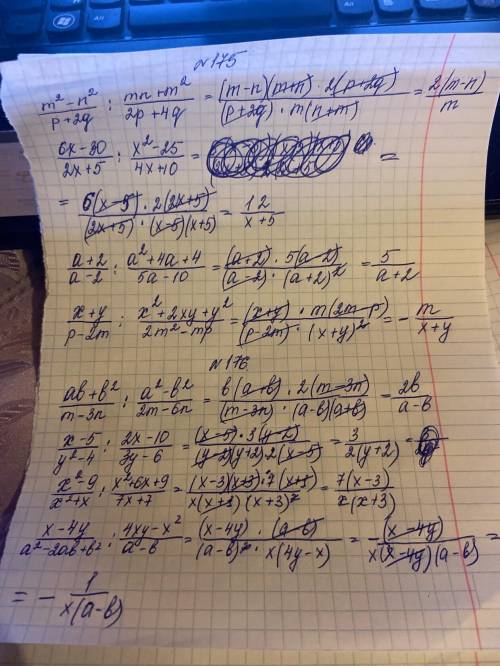 №175
m²-n²/p+2q : mn+m²/2p+4q = (m-n)(m+n)·2(p+2q)/(p+2q)·m(n+m) = 2(m-n)/m
6x-30/2x+5 : x²-25/4x+10 = =
= 6(x-5)·2(2x+5)/(2x+5)·(x-5)(x+5) = 12/x+5
a+2/a-2 : a²+4a+4/5a-10 = (a+2)·5(a-2)/(a-2)·(a+2)² = 5/a+2
x+y/p-2m : x²+2xy+y²/2m²-mp = (x+y)·m(2m-p)/(p-2m)·(x+y)² = -m/x+y
№176
ab+b²/m-3n : a²-b²/2m-6n = b(a+b)·2(m-3n)/(m-3n)·(a-b)(a+b) = 2b/a-b
x-5/y²-4 : 2x-10/3y-6 = (x-5)·3(y-2)/(y-2)(y+2)·2(x-5) = 3/2(y+2) =
x²-9/x²+x : x²+6x+9/7x+7 = (x-3)(x+3)·7(x+1)/x(x+1)(x+3)² = 7(x-3)/x(x+3)
x-4y/a²-2ab+b² : 4xy-x²/a-b = (x-4y)·(a-b)/(a-b)²·x(4y-x) = -(x-4y)/x(x-4y)(a-b) =
= -1/x(a-b)